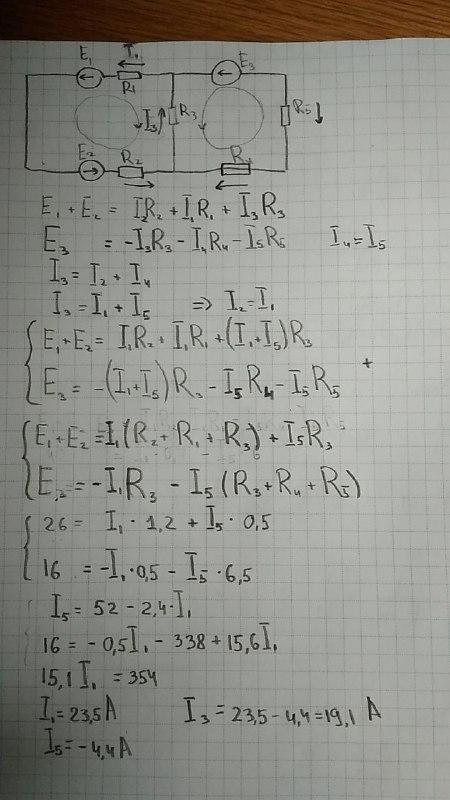 E₁ I₁ R₁ E₃
I₃ R₃ R₅
E₂ R₂ R₄
E₁ + E₂ = I₂R₂ + I₁R₁ + I₃R₃
E₃ = -I₃R₃ - I₄R₄ - I₅R₅ I₄ = I₅
I₃ = I₂ + I₄
I₃ = I₁ + I₅ => I₂ = I₁
E₁+E₂ = I₁R₂ + I₁R₁ + (I₁+I₅)R₃
E₃ = -(I₁+I₅)R₃ - I₅R₄ - I₅R₅ +
E₁+E₂ = I₁(R₂ + R₁ + R₃) + I₅R₃
= -I₁R₃ - I₅(R₃+R₄+R₅)
26 = I₁·1,2 + I₅·0,5
16 = -I₁·0,5 - I₅·6,5
I₅ = 52 - 2,4·I₁
16 = -0,5I₁ - 338 + 15,6I₁
15,1I₁ = 354
I₁ = 23,5A I₃ = 23,5 - 4,4 = 19,1 A
I₅ = -4,4A